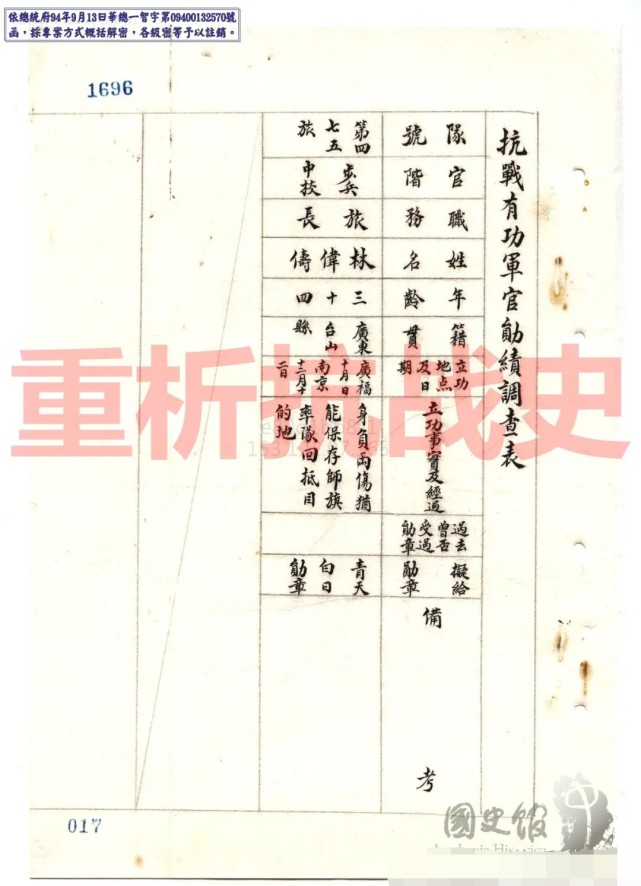 依總統府94年9月13日華總一智字第09400132570號
函，採專案方式概括解密，各級密等予以註銷。
1696
抗戰有功軍官勛績調查表
隊號
官階
職務
姓名
年齡
籍貫
立功
地点
及日
期
立功事實及經過
過去
曾否
受過
勛章
擬給
勛章
備考
第四
七五
旅
步兵
中校
旅長
林偉儔
三十四
廣東
台山
縣
廣福
十月日
南京
十二月十
二日
身負兩傷猶
能保存師旗
率隊回抵目
的地
青天
白日
勛章
重析抗战史
017
國史館